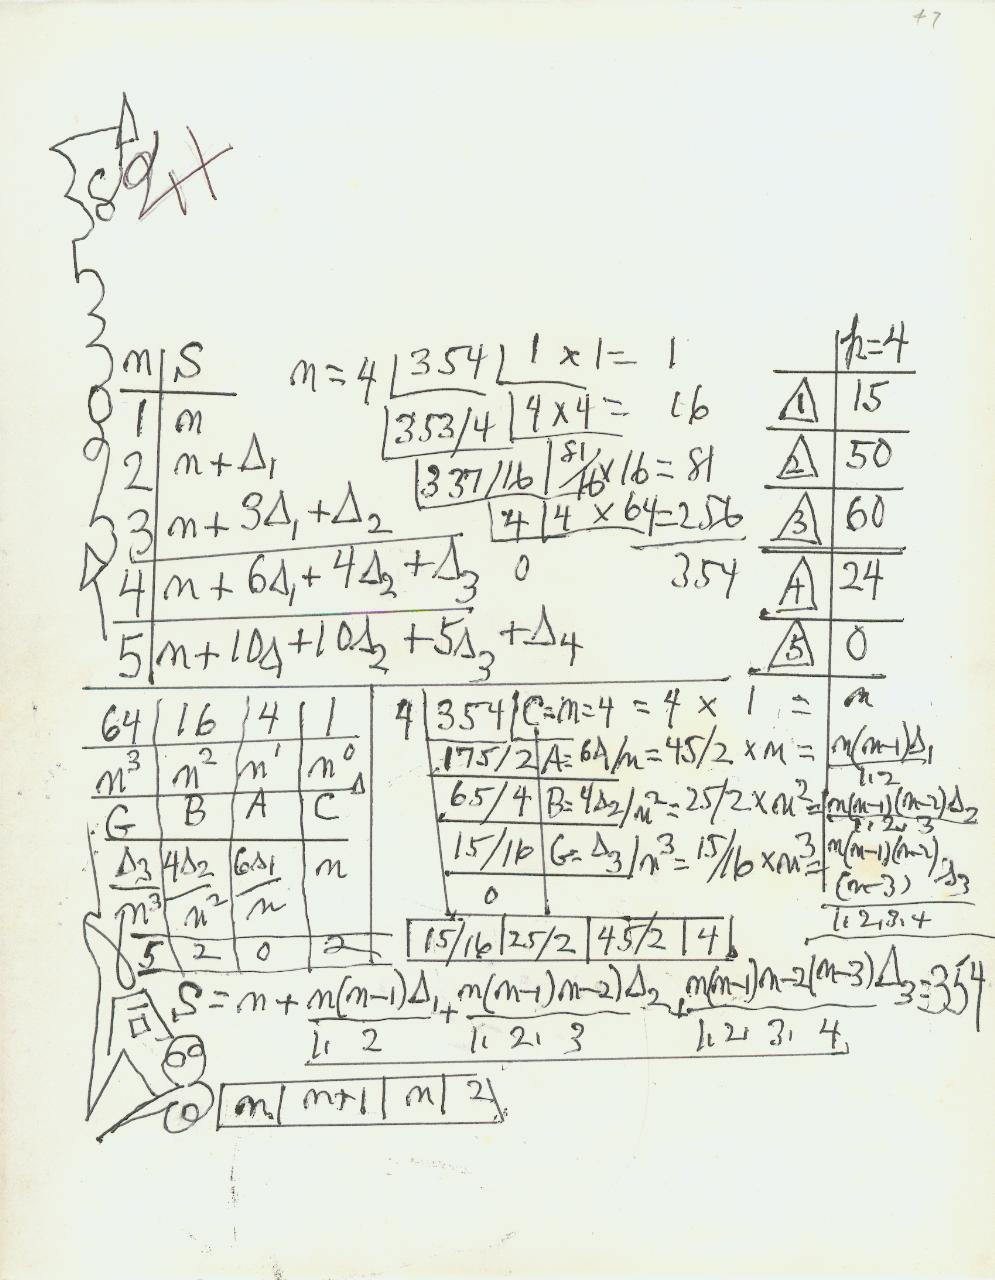 47
n S
1 n
2 n + Δ1
3 n + 3Δ1 + Δ2
4 n + 6Δ1 + 4Δ2 + Δ3
5 n + 10Δ1 + 10Δ2 + 5Δ3 + Δ4
n = 4 354 1 × 1 = 1
353/4 4 × 4 = 16
337/16 81/16 × 16 = 81
4 4 × 64 = 256
0 354
n=4
1 15
2 50
3 60
4 24
5 0
64 16 4 1
n³ n² n¹ n⁰
G B A C
Δ3/n³ 4Δ2/n² 6Δ1/n n
5 2 0 2
4 354 C=n=4 = 4 × 1 = n
175/2 A=6Δ/n=45/2 × n = n(n-1)Δ1
1, 2
65/4 B=4Δ2/n²=25/2 × n²= n(n-1)(n-2)Δ2
1, 2, 3
15/16 G=Δ3/n³=15/16 × n³= n(n-1)(n-2)
(n-3) Δ3
1, 2, 3, 4
0
15/16 25/2 45/2 4
S = n + n(n-1)Δ1 + n(n-1)n-2)Δ2 + n(n-1)n-2(n-3)Δ3=354
1, 2 1, 2, 3 1, 2, 3, 4
n n+1 n 2